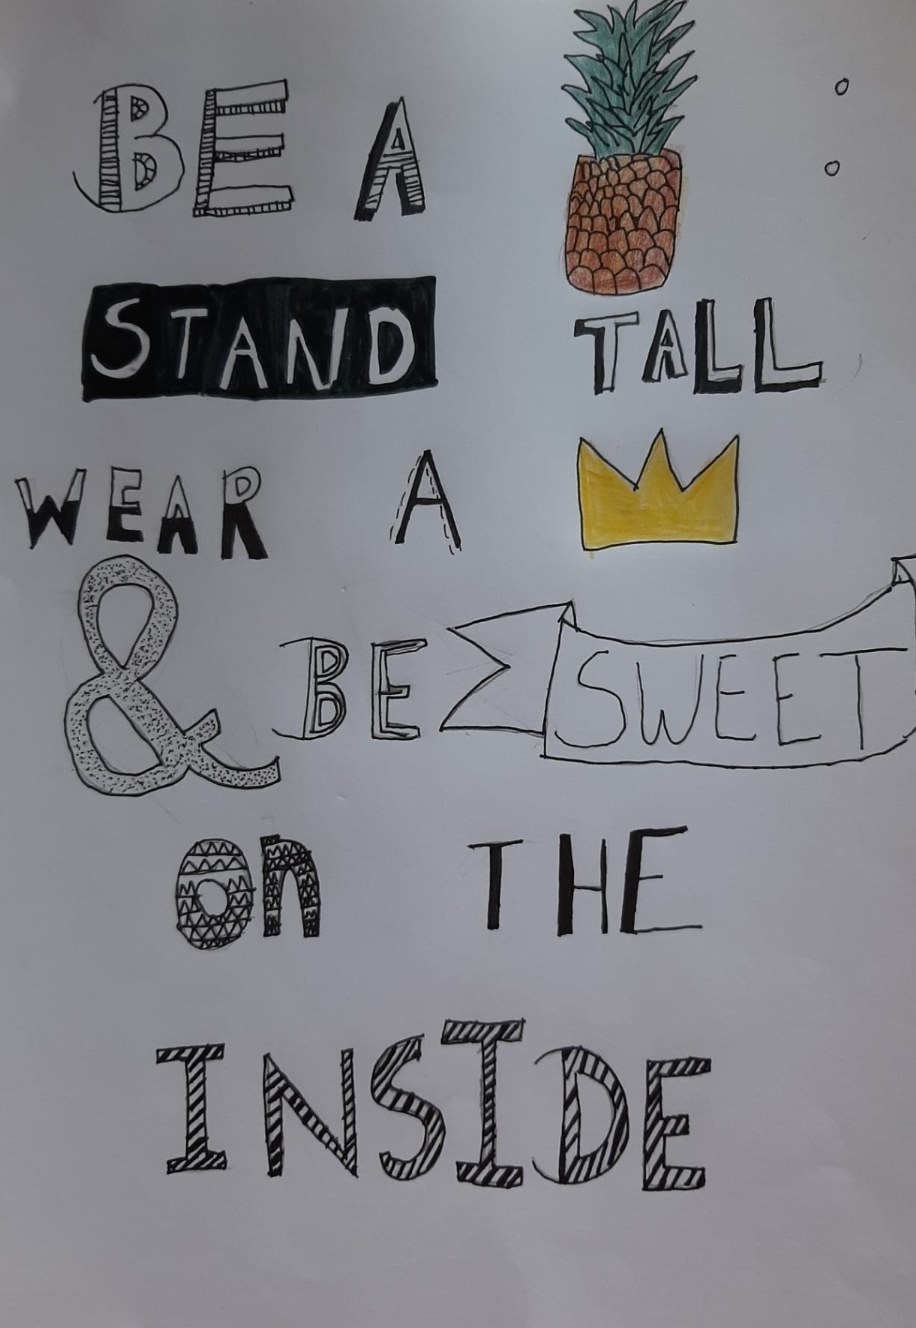 BE A :
STAND TALL
WEAR A
& BE SWEET
On THE
INSIDE